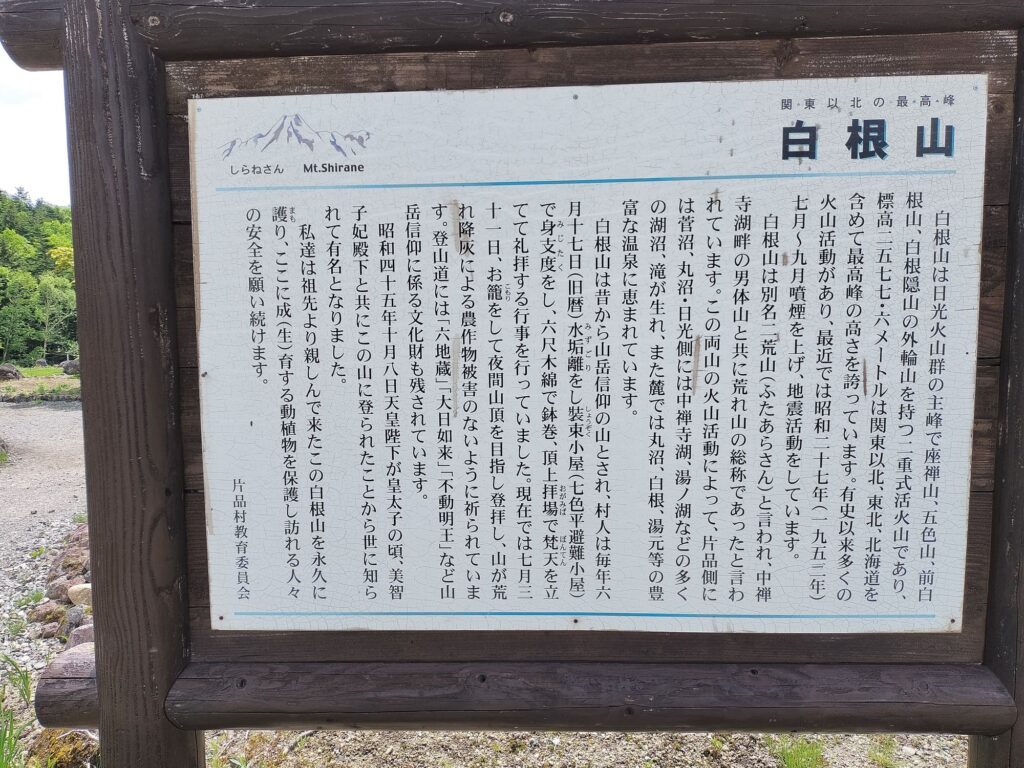 関東以北の最高峰
白根山
しらねさん Mt.Shirane
白根山は日光火山群の主峰で座禅山、五色山、前白
根山、白根隠山の外輪山を持つ二重式活火山であり、
標高二五七七・六メートルは関東以北、東北、北海道を
含めて最高峰の高さを誇っています。有史以来多くの
火山活動があり、最近では昭和二十七年(一九五二年)
七月〜九月噴煙を上げ、地震活動をしています。
白根山は別名二荒山(ふたあらさん)と言われ、中禅
寺湖畔の男体山と共に荒れ山の総称であったと言わ
れています。この両山の火山活動によって、片品側に
は菅沼、丸沼・日光側には中禅寺湖、湯ノ湖などの多く
の湖沼、滝が生れ、また麓では丸沼、白根、湯元等の豊
富な温泉に恵まれています。
白根山は昔から山岳信仰の山とされ、村人は毎年六
月十七日(旧暦)水垢離をし装束小屋(七色平避難小屋)
で身支度をし、六尺木綿で鉢巻、頂上拝場で梵天を立
てて礼拝する行事を行っていました。現在では七月三
十一日、お籠をして夜間山頂を目指し登拝し、山が荒
れ降灰による農作物被害のないように祈られていま
す。登山道には「六地蔵」「大日如来」「不動明王」など山
岳信仰に係る文化財も残されています。
昭和四十五年十月八日天皇陛下が皇太子の頃、美智
子妃殿下と共にこの山に登られたことから世に知ら
れて有名となりました。
私達は祖先より親しんで来たこの白根山を永久に
護り、ここに成(生)育する動植物を保護し訪れる人々
の安全を願い続けます。
片品村教育委員会